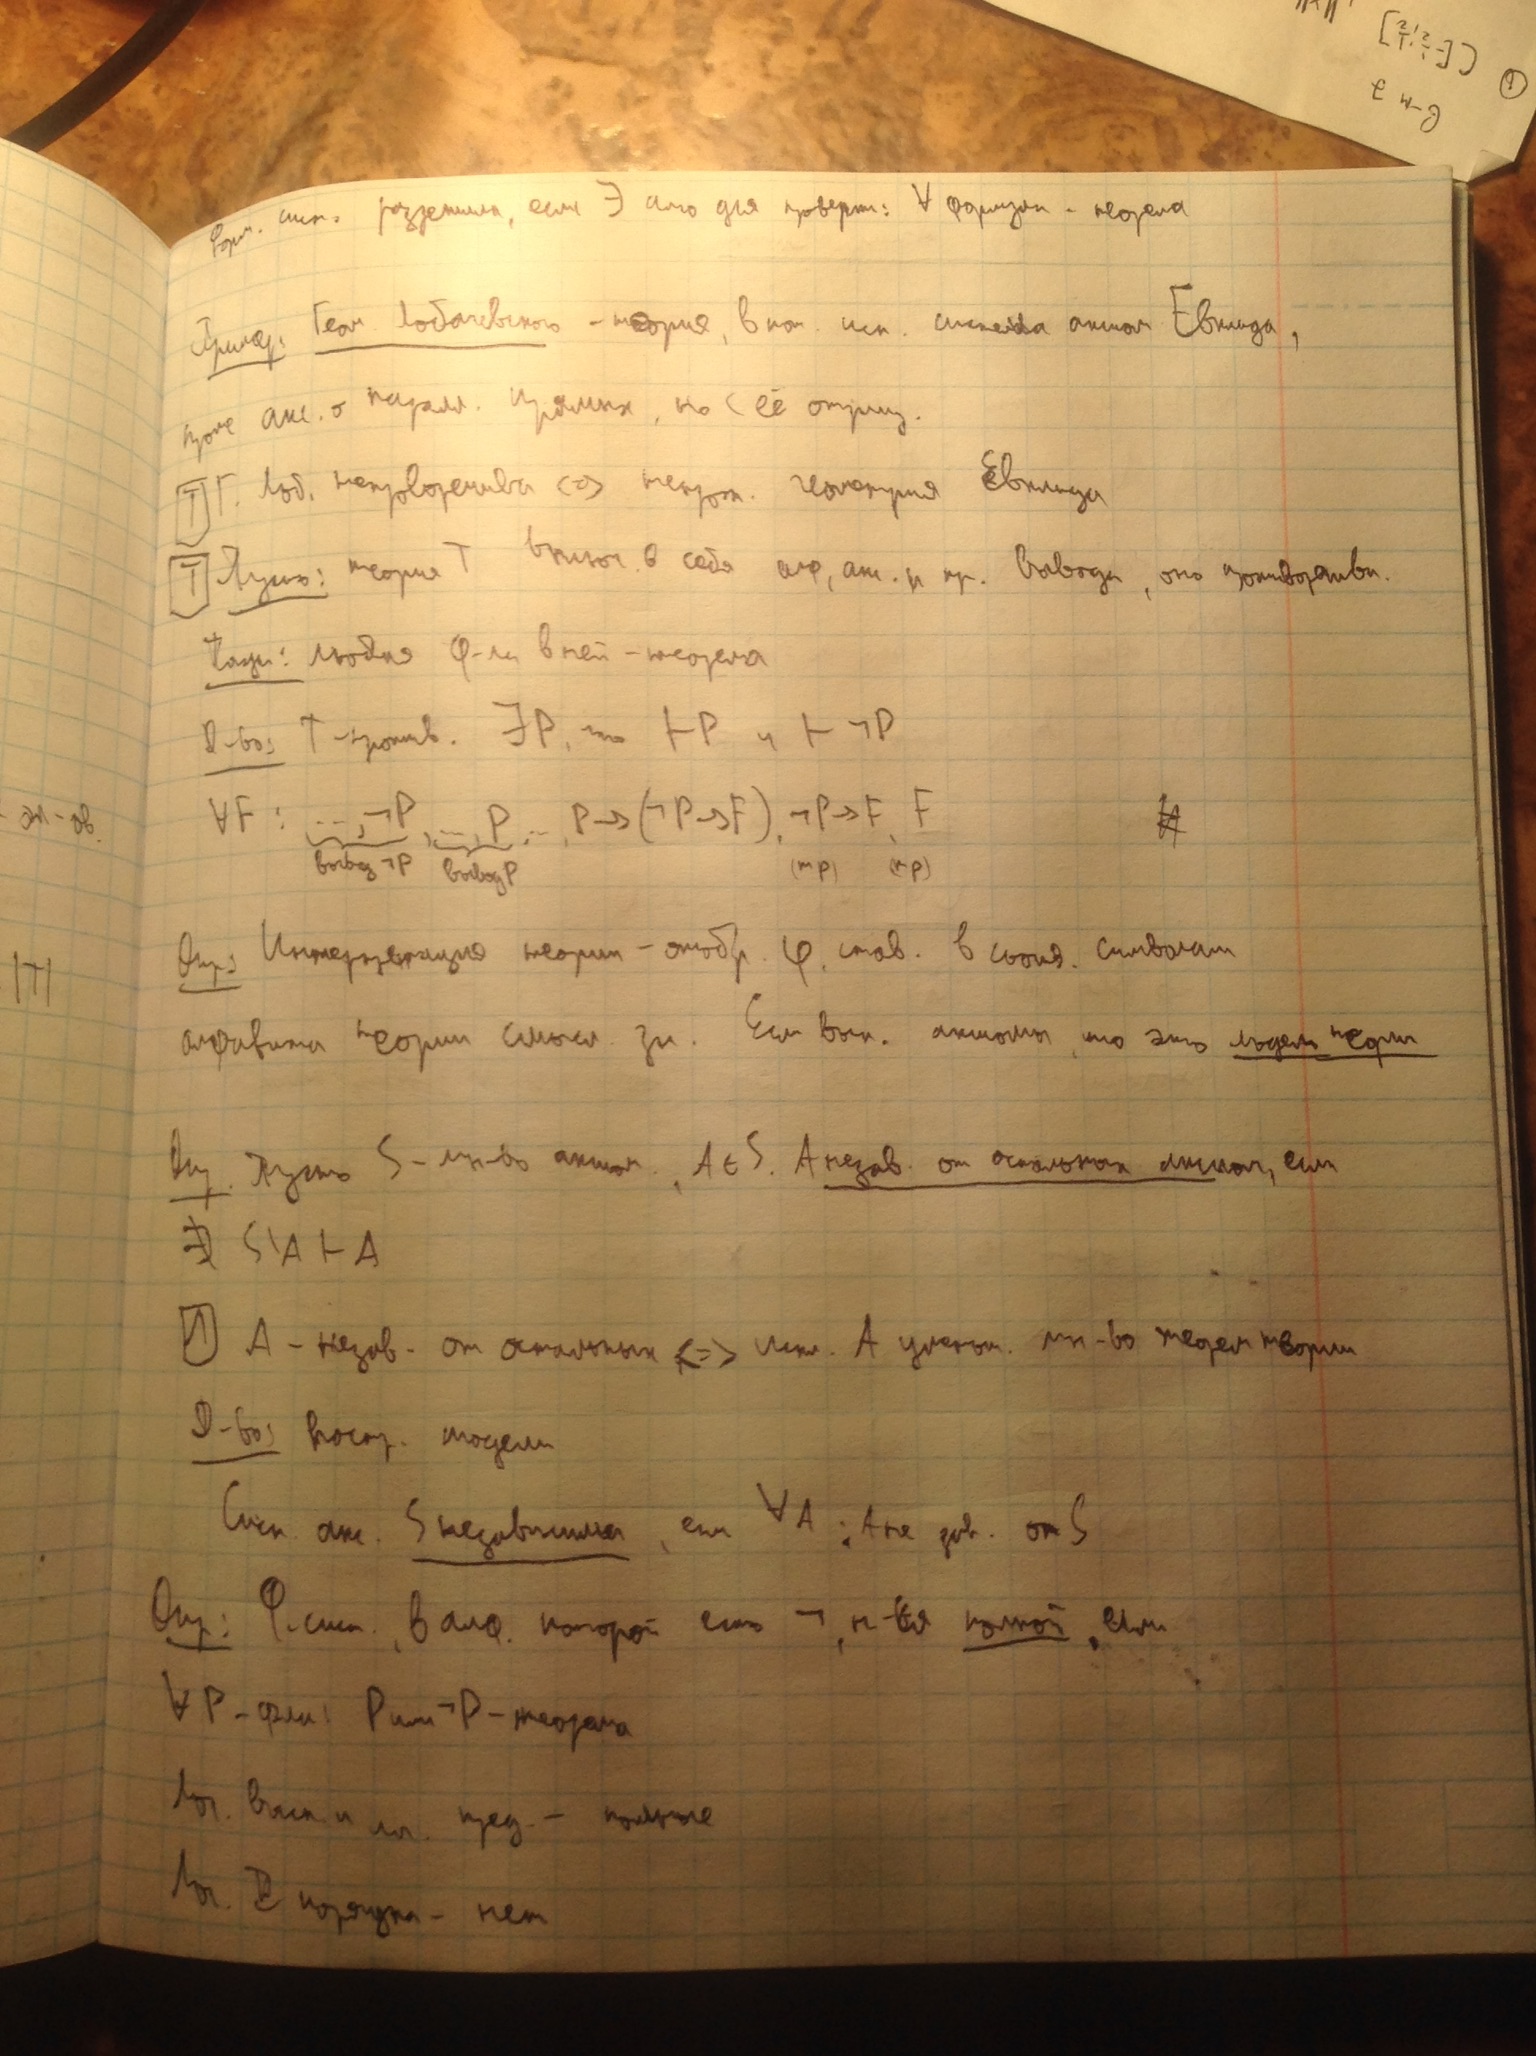 Форм. сист. разрешима, если ∃ алг для проверки: ∀ формулы - теорема
Пример: Геом. Лобачевского - теория, в кот. исп. система аксиом Евклида,
кроме акс. о паралл. прямых, но с её отриц.
Т Г. Лоб. непротиворечива <=> непрот. геометрия Евклида
Т Пусть: теория T включ. в себя алф, акс. и пр. вывода, она противоречива.
Тогда: любая ф-ла в ней - теорема
Д-во: T - против. ∃P, что ⊢P и ⊢¬P
∀F: ..., ¬P, ..., P, ..., P→(¬P→F), ¬P→F, F #
вывод ¬P вывод P (mp) (mp)
Опр: Интерпретация теории - отобр. φ, став. в соотв. символам
алфавита теории смысл. зн. Если вып. аксиомы, то это модель теории
Опр. Пусть S - мн-во аксиом, A∈S. A незав. от остальных аксиом, если
∄ S\A ⊢ A
Л A - незав. от остальных <=> искл. A уменьш. мн-во теорем теории
Д-во: постр. модели
Сист. акс. S независима, если ∀A: A не зав. от S
Опр: Ф. сист., в алф. которой есть ¬, н-ся полной, если
∀P - ф-лы: P или ¬P - теорема
Лог. выск. и лог. пред. - полные
Лог. II порядка - нет
эл-ов.
|T|
C[-½,½]